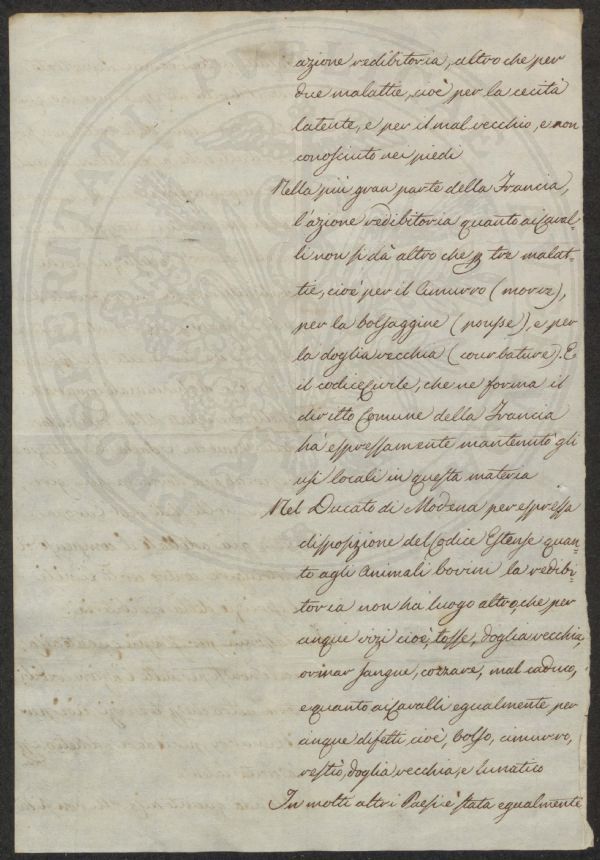 azione redibitoria, altro che per
due malattie, cioè per la cecità
latente, e per il mal vecchio, e non
conosciuto nei piedi
Nella più gran parte della Francia,
l'azione redibitoria quanto ai Caval-
li non si dà altro che p tre malat-
tie, cioè per il Cimurro (morve),
per la bolsaggine (pousse), e per
la doglia vecchia (courbature). E
il codice Civile, che ne forma il
diritto Comune della Francia
hà espressamente mantenuto gli
usi locali in questa materia
Nel Ducato di Modena per espressa
disposizione del Codice Estense quan-
to agli Animali bovini la redibi-
toria non ha luogo altro, che per
cinque vizi cioè, tosse, doglia vecchia,
orinar sangue, cozzare, mal caduco,
e quanto ai Cavalli egualmente per
cinque difetti, cioè, bolso, cimurro,
restìo, doglia vecchia, e lunatico
In molti altri Paesi è stata egualmente